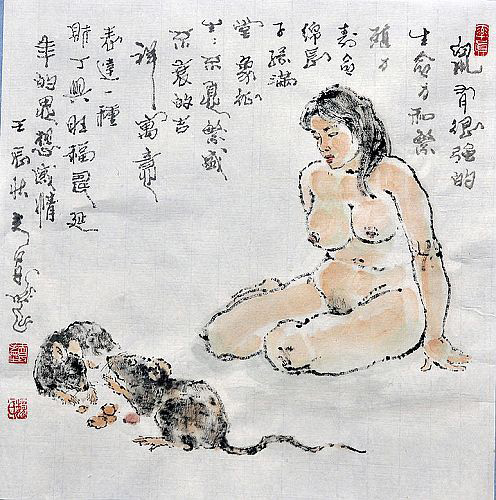 鼠有很强的
生命力和繁
殖力
寿命
绵長
子孫满
堂象征
生:不息繁盛
不衰的吉
祥寓意
表達一種
财丁興旺福延
年的思想感情
壬辰秋